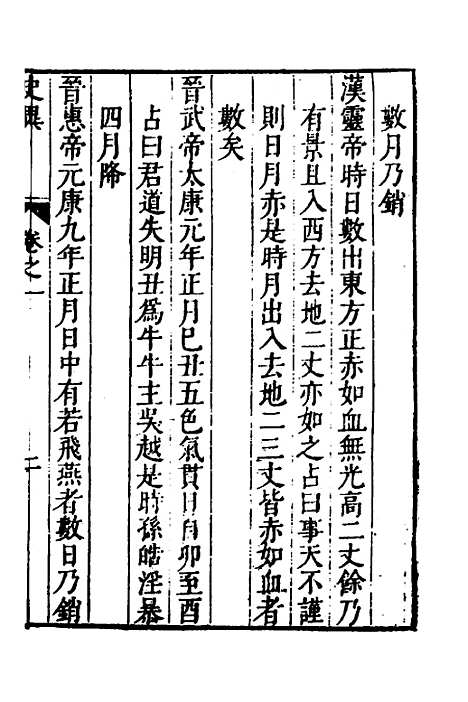 數月乃銷
漢靈帝時日數出東方正赤如血無光高二丈餘乃
有景且入西方去地二丈亦如之占曰事天不謹
則日月赤是時月出入去地二三丈皆赤如血者
數矣
晉武帝太康元年正月巳丑五色氣貫日自卯至酉
占曰君道失明丑爲牛牛主吳越是時孫皓淫暴
四月降
晉惠帝元康九年正月日中有若飛燕者數日乃銷
史異 卷之一 二